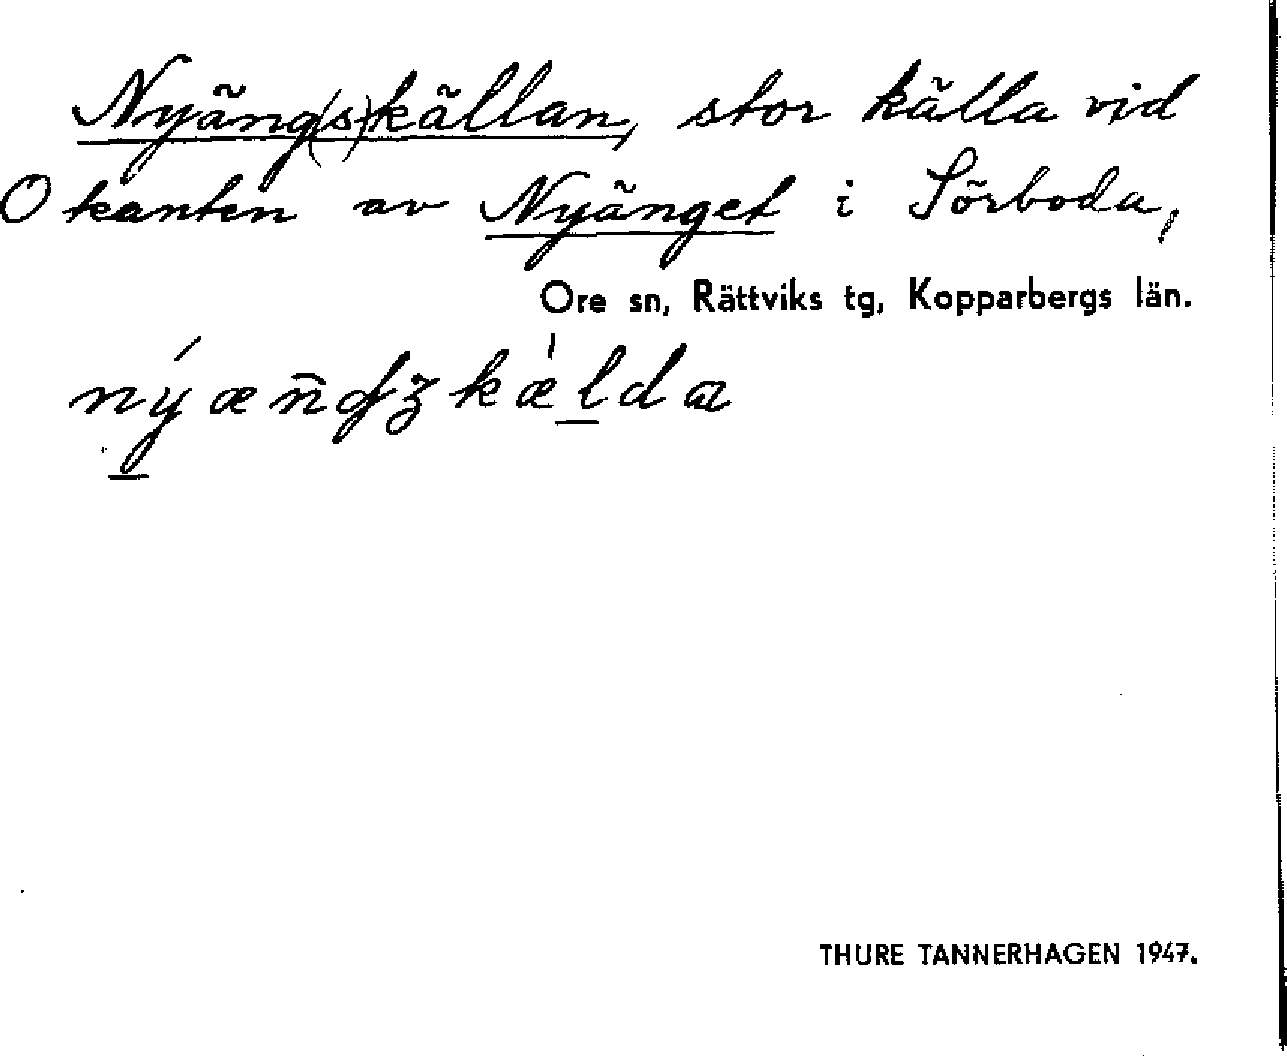 Nyäng(s)källan, stor källa vid
O kanten av Nyänget i Sörboda,
Ore sn, Rättviks tg, Kopparbergs län.
THURE TANNERHAGEN 1947.